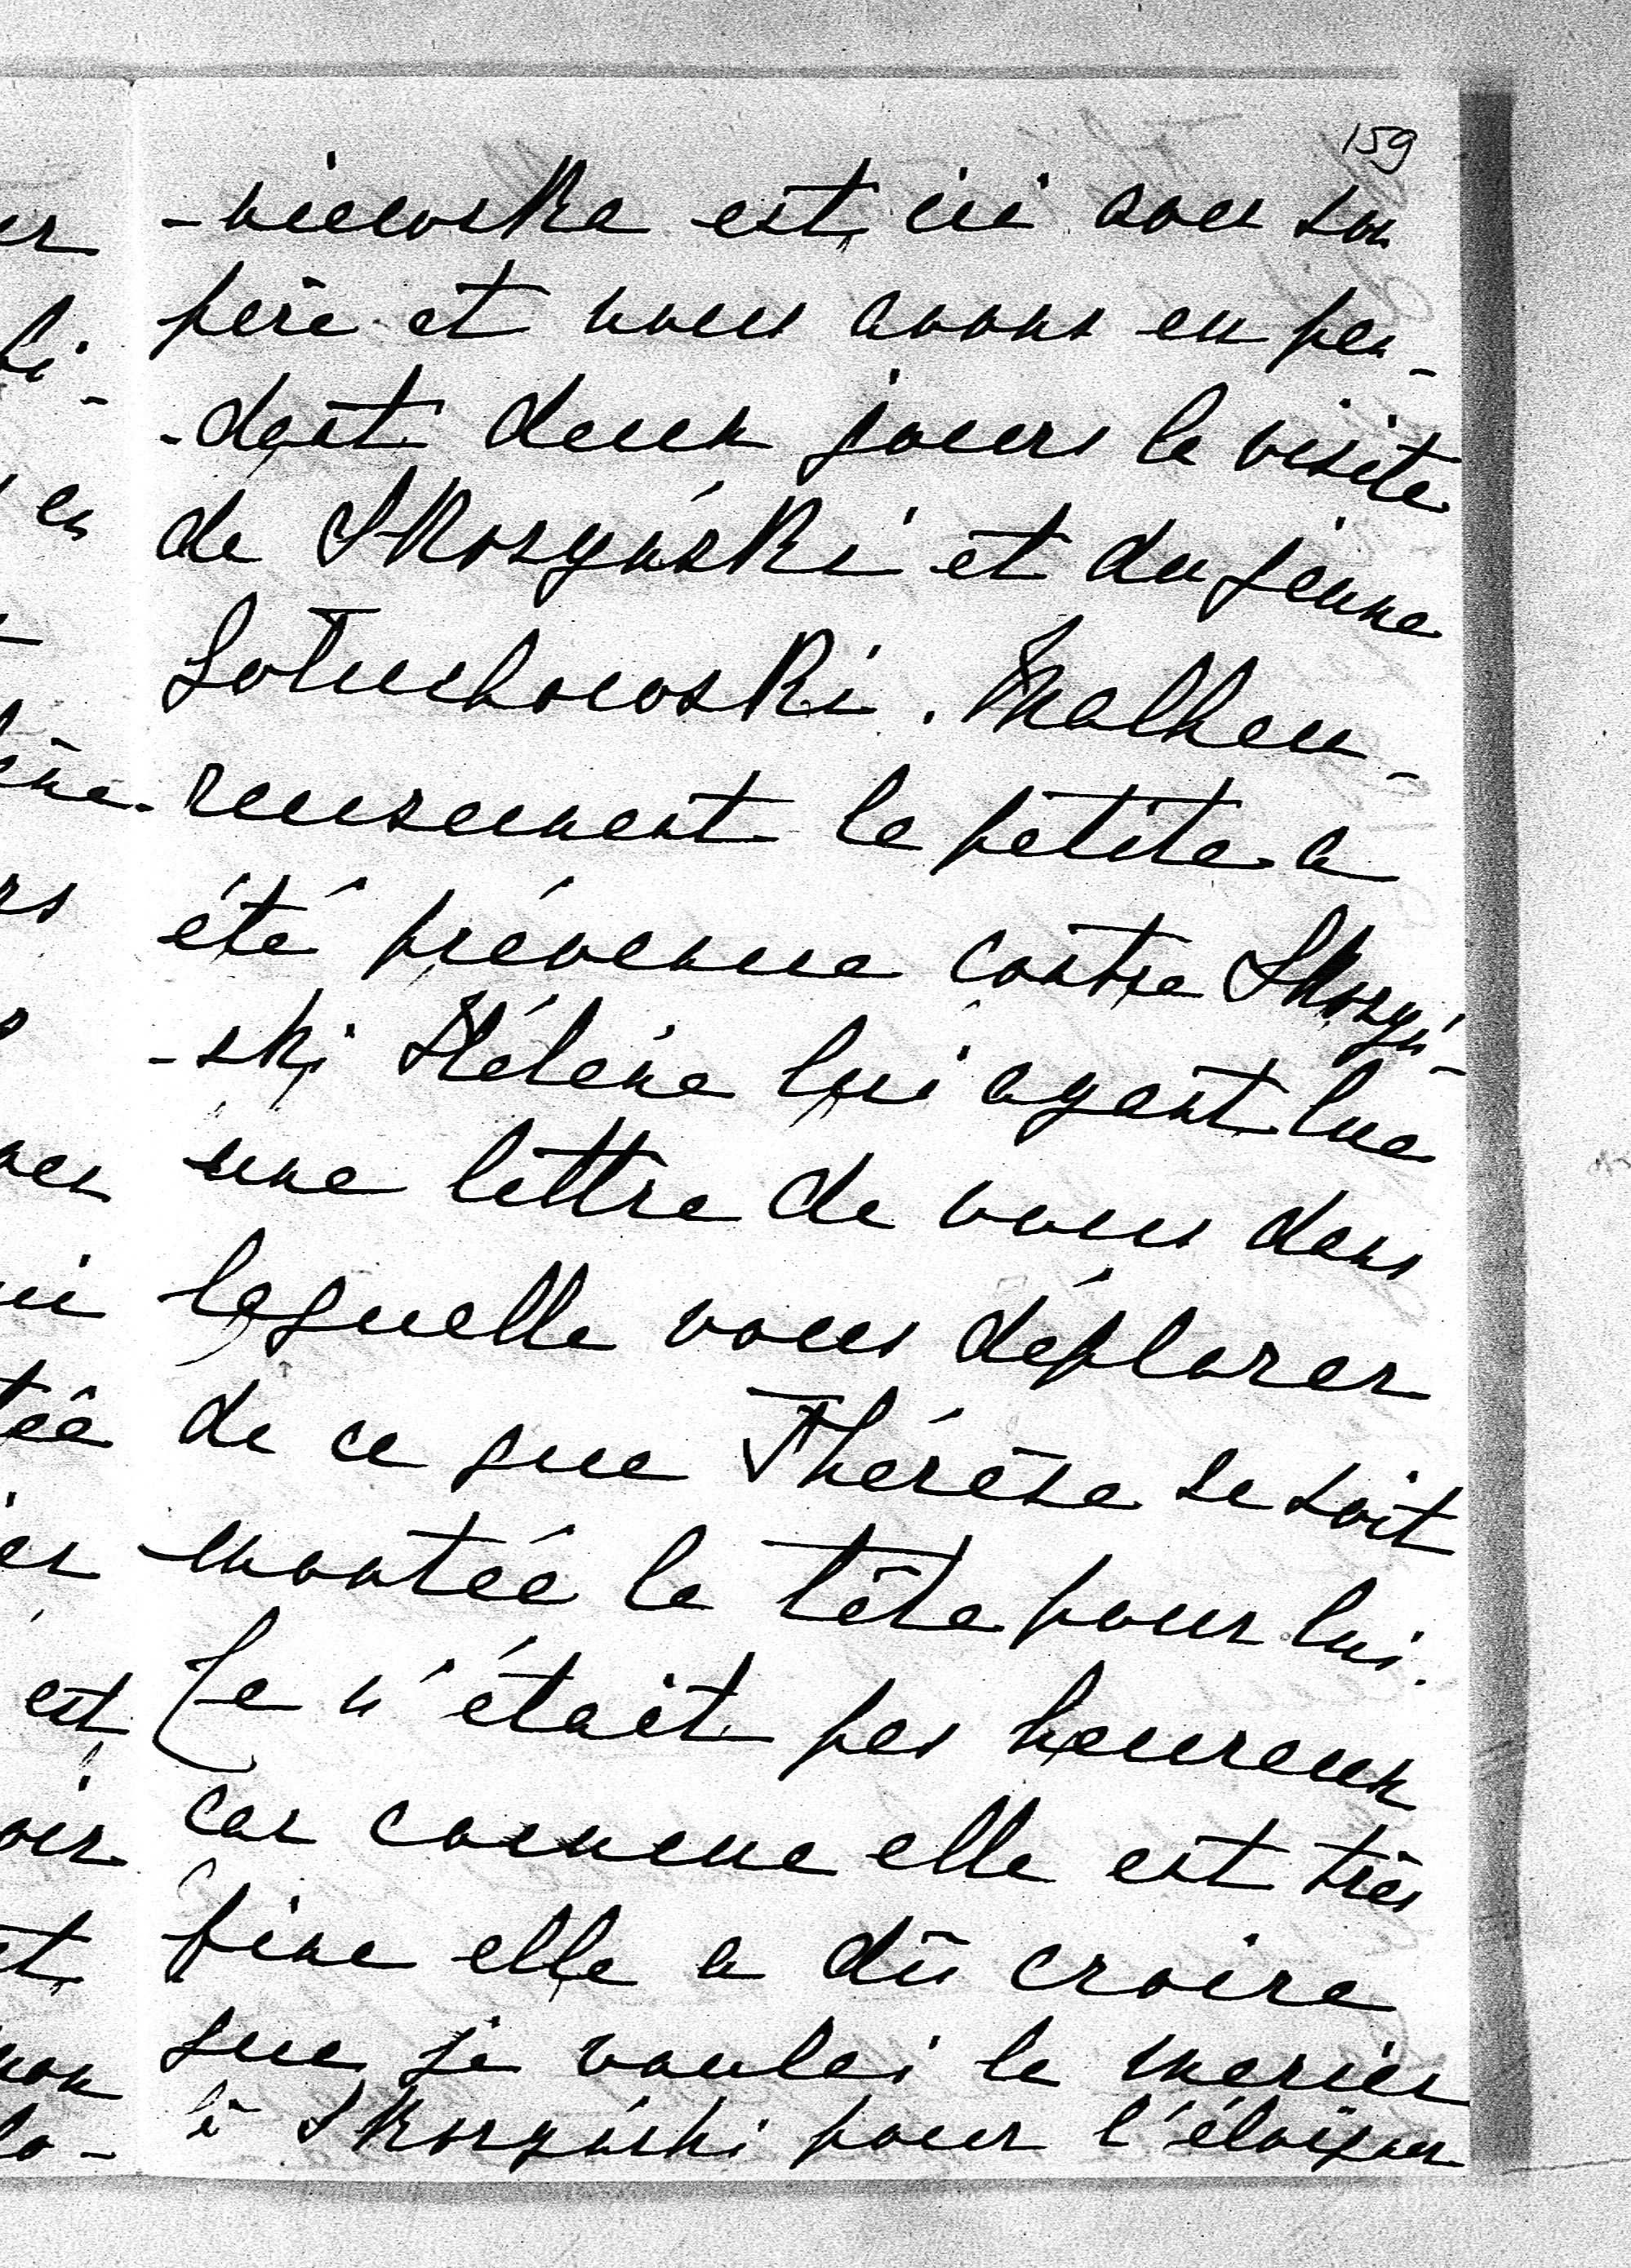 159
-niewska est ici avec son
père et nous avons eu pen-
-dant deux jours la visite
de Skorzyński et du jeune
Soluchowski. Malheu-
reusement la petite a
été prévenue contre Skorzyń-
-ski Hélène lui ayant lue
une lettre de vous dans
laquelle vous déplorez
de ce que Thérèse se soit
montée la tête pour lui.
Ce n'était pas heureux
car comme elle est très
fine elle a dû croire
que je voulai la marier
à Skorzyński pour l'éloigner